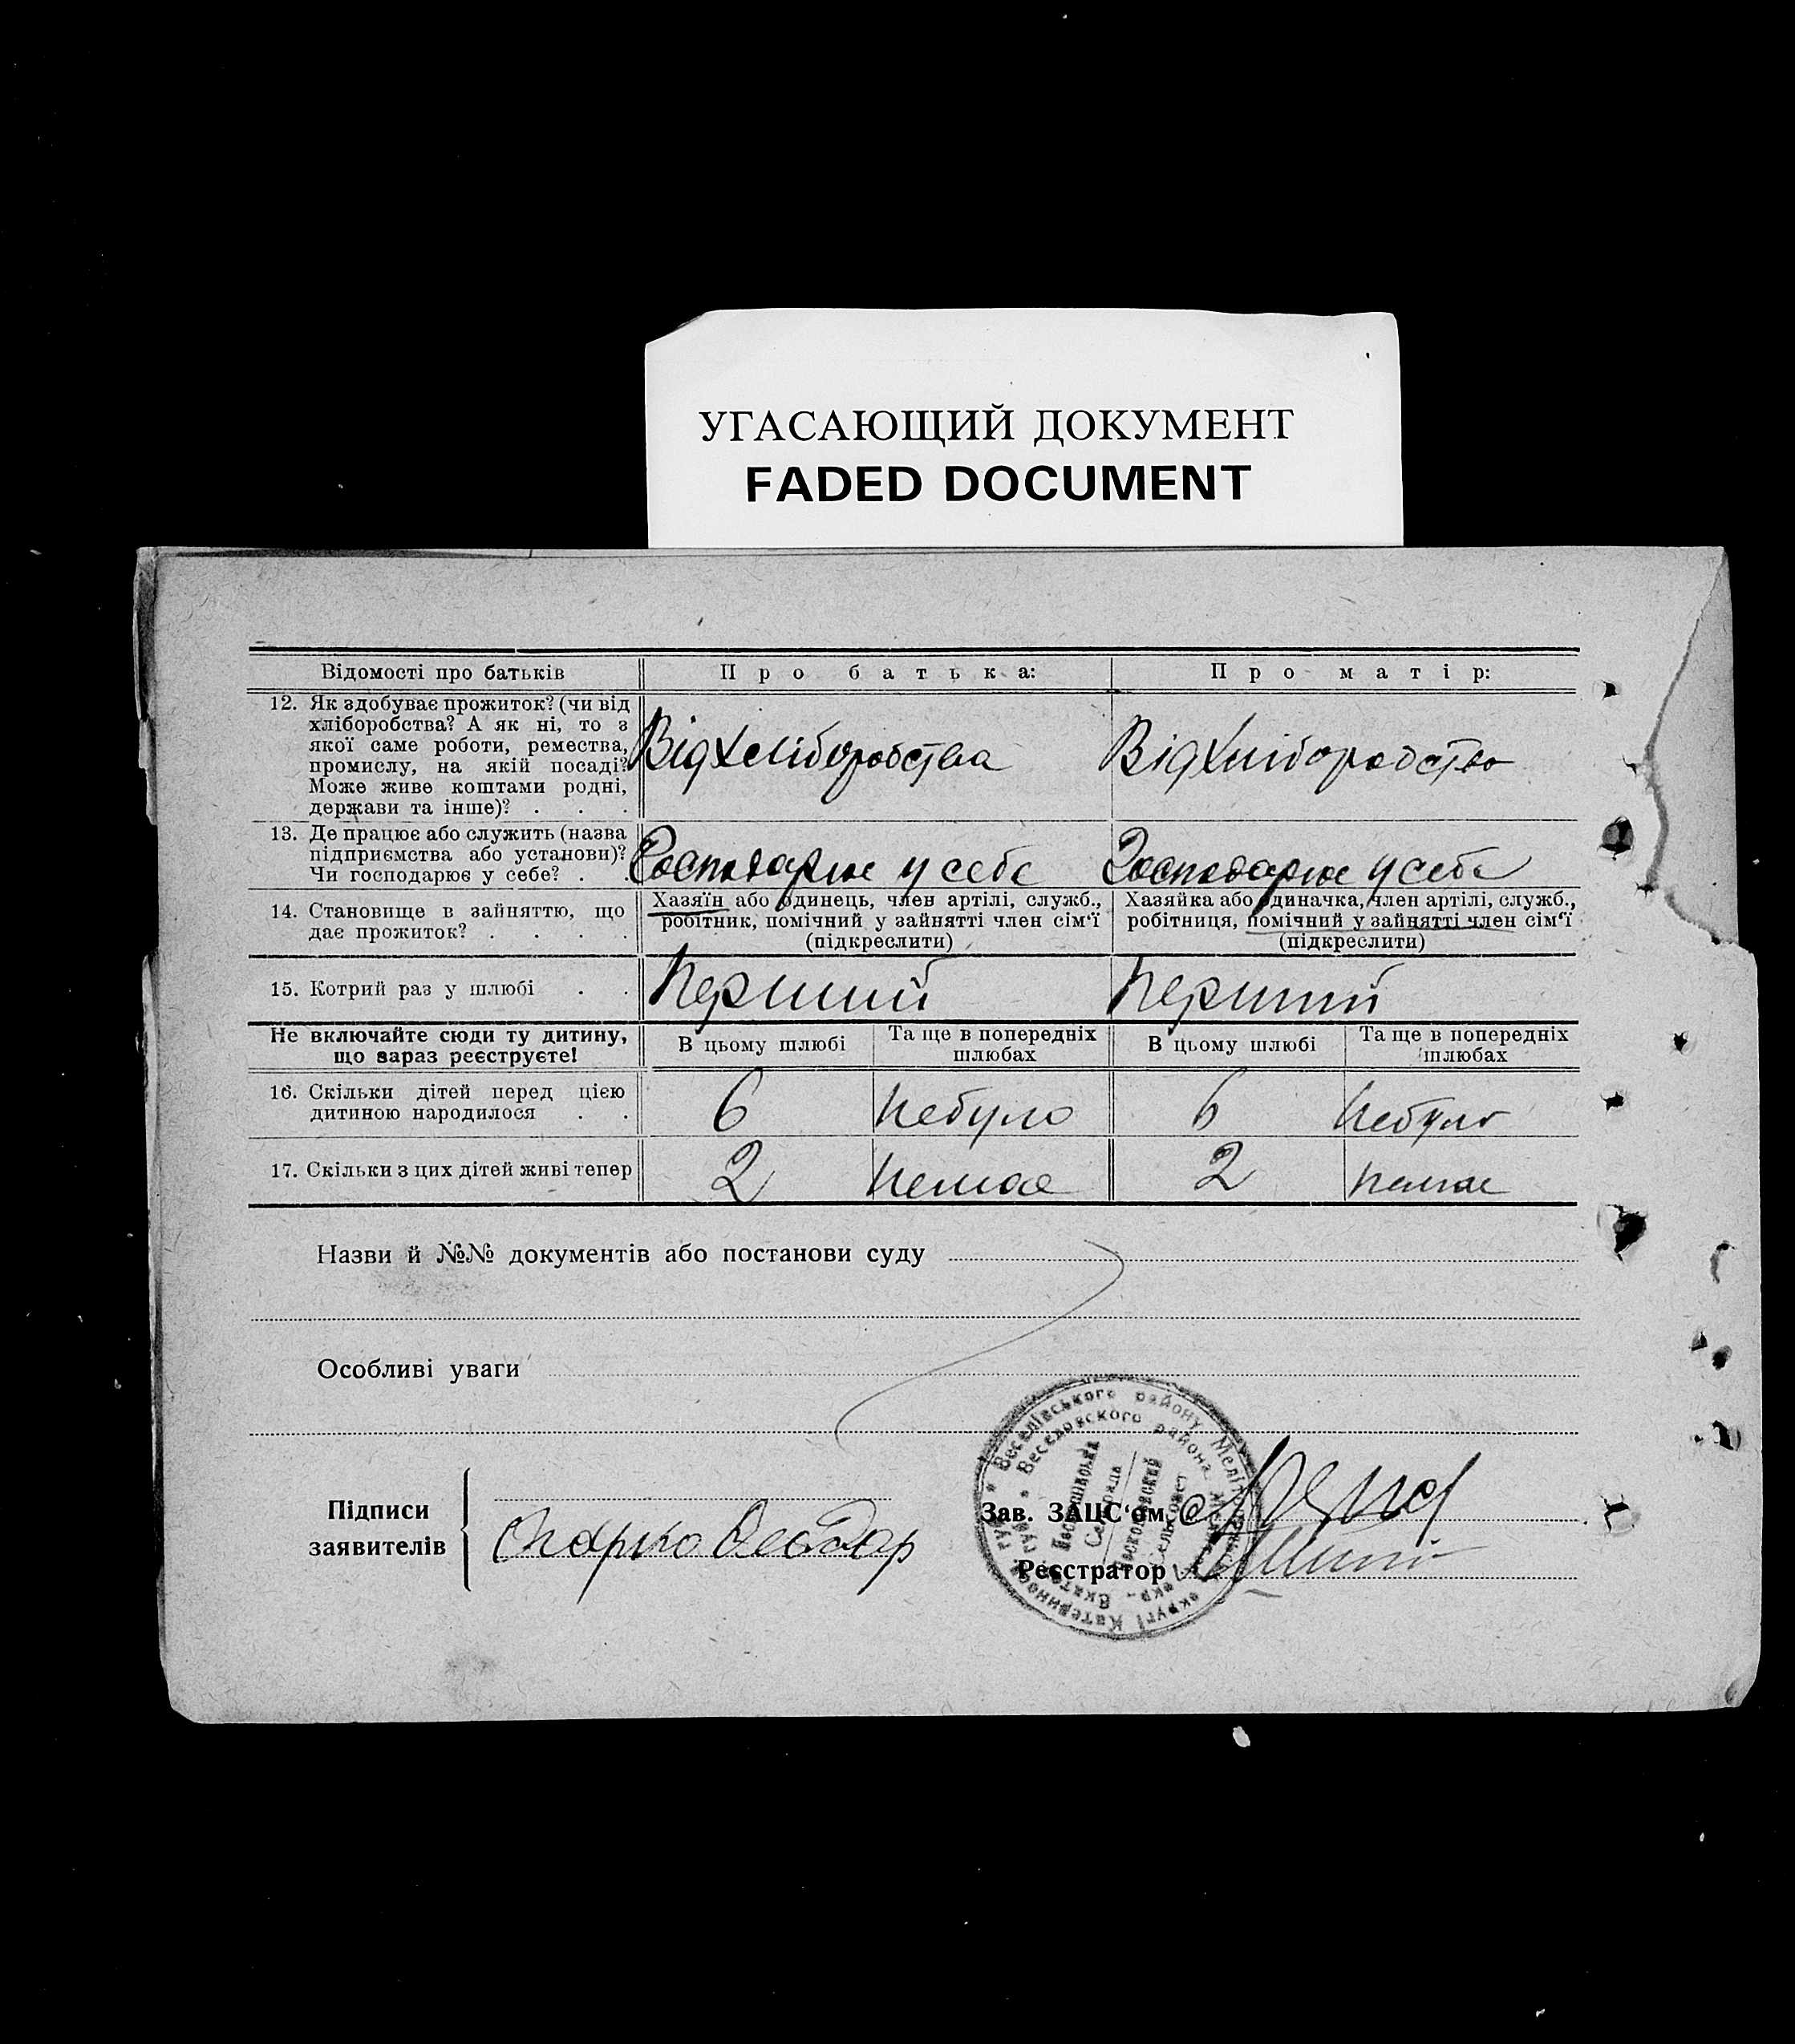 УГАСАЮЩИЙ ДОКУМЕНТ
FADED DOCUMENT
Відомості про батьків
Про батька:
Про матір:
12. Як здобуває прожиток? (чи від
хліборобства? А як ні, то з
якої саме роботи, ремества,
промислу, на якій посаді?
Може живе коштами родні,
держави та інше)? . . .
Від Хліборобства
Від Хліборобство
13. Де працює або служить (назва
підприємства або установи)?
Чи господарює у себе? . .
Господарює у себе
Господарює у себе
14. Становище в зайняттю, що
дає прожиток? . . . .
Хазяїн або одинець, член артілі, служб.,
робітник, помічний у зайнятті член сім‘ї
(підкреслити)
Хазяйка або одиначка, член артілі, служб.,
робітниця, помічний у зайнятті член сім‘ї
(підкреслити)
15. Котрий раз у шлюбі . .
Перший
Перший
Не включайте сюди ту дитину,
що зараз реєструєте!
В цьому шлюбі
Та ще в попередніх
шлюбах
В цьому шлюбі
Та ще в попередніх
шлюбах
16. Скільки дітей перед цією
дитиною народилося . .
6
Небуло
6
Небуло
17. Скільки з цих дітей живі тепер
2
Немає
2
Немає
Назви й №№ документів або постанови суду
Особливі уваги
Підписи
заявителів
Зав. ЗАЦС‘ом
Реєстратор
Веселівського району
Веселовского района